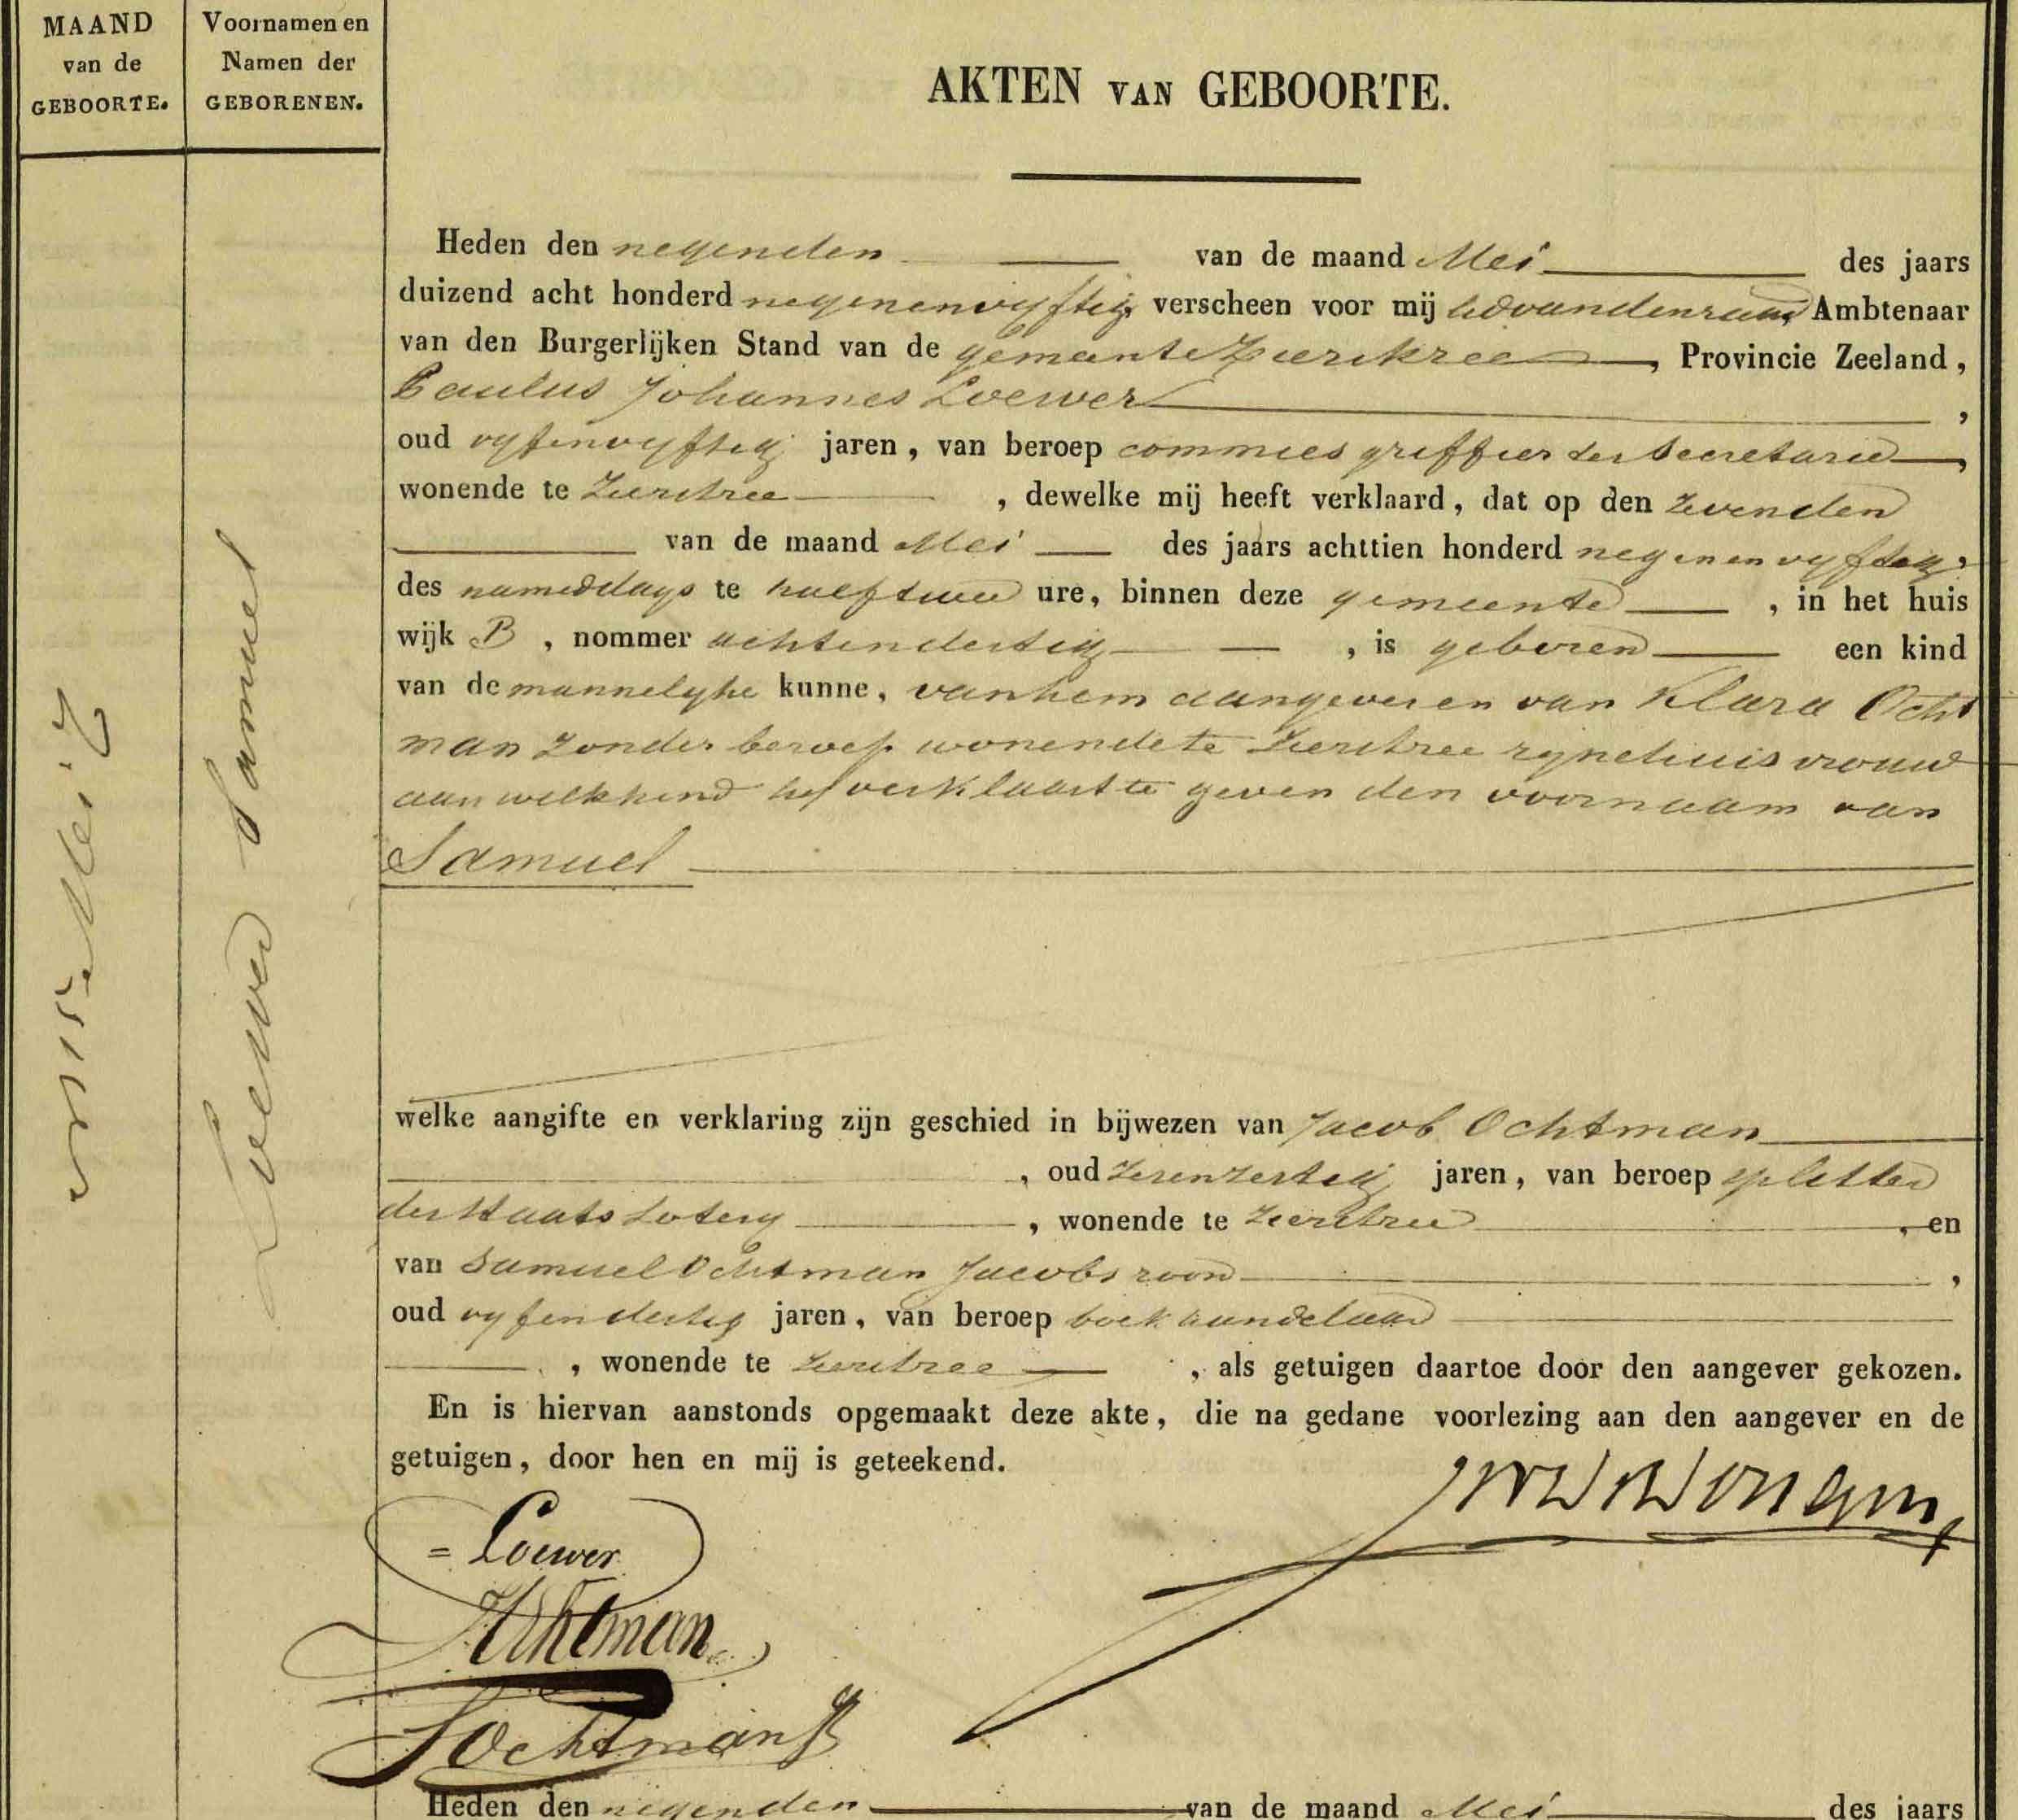 MAAND
van de
GEBOORTE.
Voornamen en
Namen der
GEBORENEN.
AKTEN VAN GEBOORTE.
7 Mei
Loewer Samuel
Heden den negenden van de maand Mei des jaars
duizend acht honderd negenenvyftig verscheen voor mij Ambtenaar
van den Burgerlijken Stand van de gemeente Zierikzee, Provincie Zeeland,
Paulus Johannes Loewer,
oud vyfenvyftig jaren, van beroep commies griffier der Secretarie,
wonende te Zierikzee, dewelke mij heeft verklaard, dat op den zevenden
van de maand Mei des jaars achttien honderd negenenvyftig,
des namiddags te half twee ure, binnen deze gemeente, in het huis
wijk B, nommer achtendertig, is geboren een kind
van de mannelyke kunne, van hem aangever en van Klara Ocht
man zonder beroep wonende te Zierikzee zyne huisvrouw
aan welk kind hy verklaart te geven den voornaam van
Samuel
welke aangifte en verklaring zijn geschied in bijwezen van Jacob Ochtman
, oud zesenzestig jaren, van beroep splitter
der Staats Lotery, wonende te Zierikzee, en
van Samuel Ochtman Jacobszoon,
oud vyfendertig jaren, van beroep boekhandelaar
, wonende te Zierikzee, als getuigen daartoe door den aangever gekozen.
En is hiervan aanstonds opgemaakt deze akte, die na gedane voorlezing aan den aangever en de
getuigen, door hen en mij is geteekend.
= Loewer
JOchtman
SOchtman Jz
Heden den negenden van de maand Mei des jaars